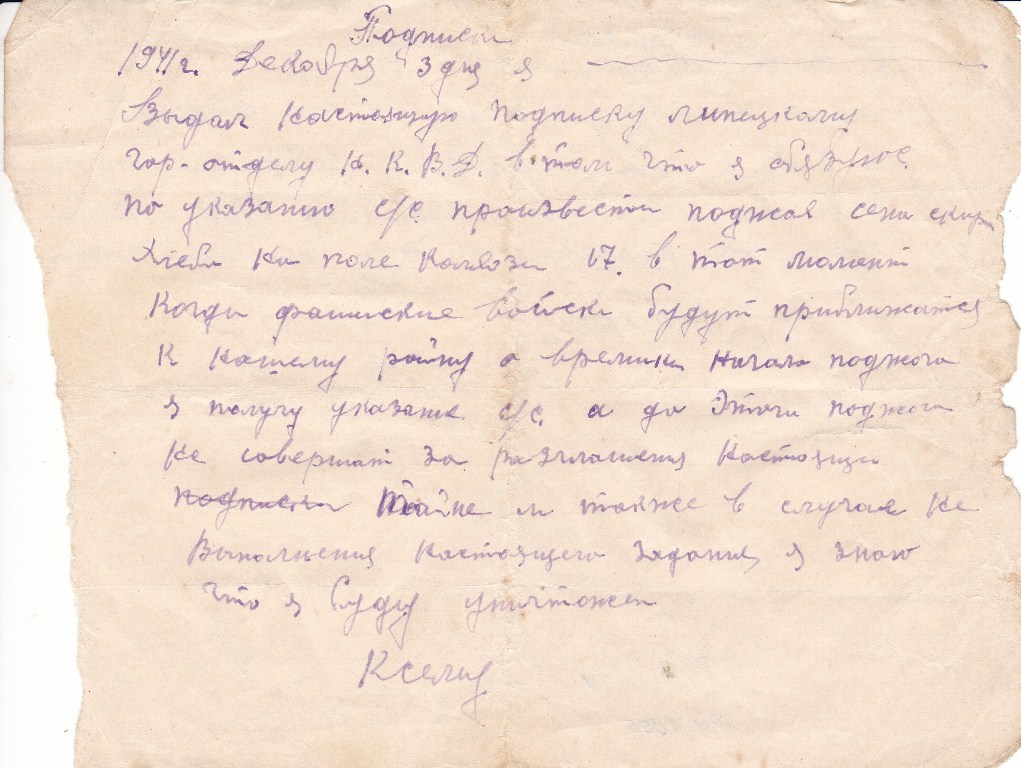 Подписка
1941г. Декабря "3 дня я
Выдал настоящую подписку липецкому
гор-отделу Н. К. В. Д. в том что я обязуюс
по указанию с/с. произвести поджог сена скирд
хлеба на поле колхоза 17. в тот момент
когда фашиские войска будут приближатся
К нашему райну о времени начала поджога
я получу указание с/с. а до этого поджога
не совершат за разглашения настоящи
подписки тайне и также в случае не
Выполнения настоящего задания я знаю
что я буду уничтожен